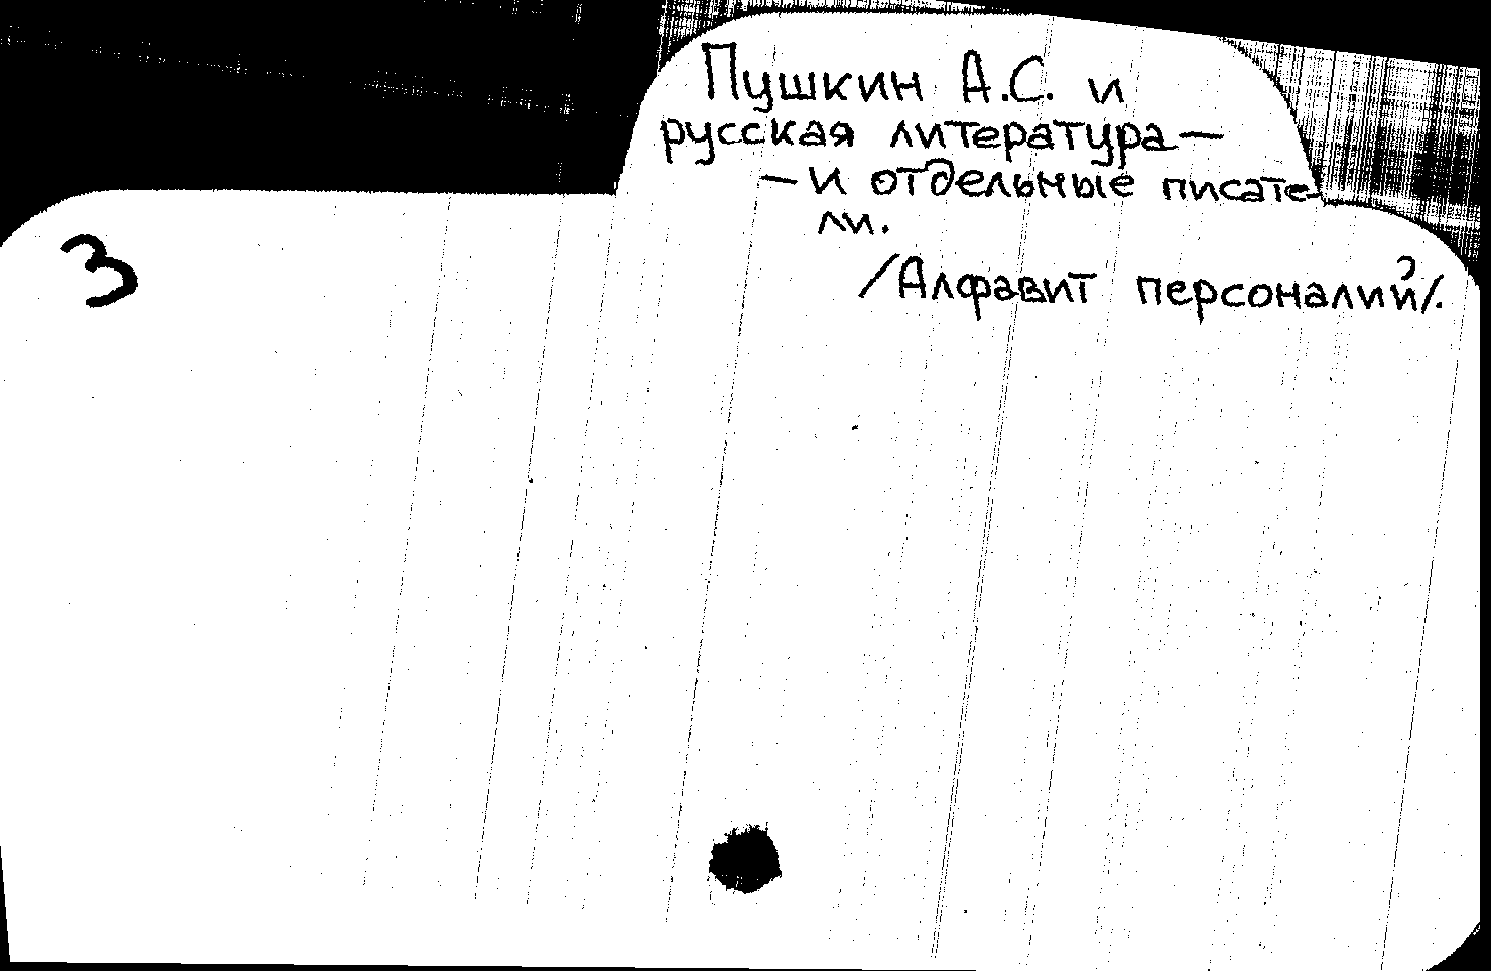 Пушкин А.С. и
русская литература —
— и отдельные писате-
ли.
/Алфавит персоналий/.
3